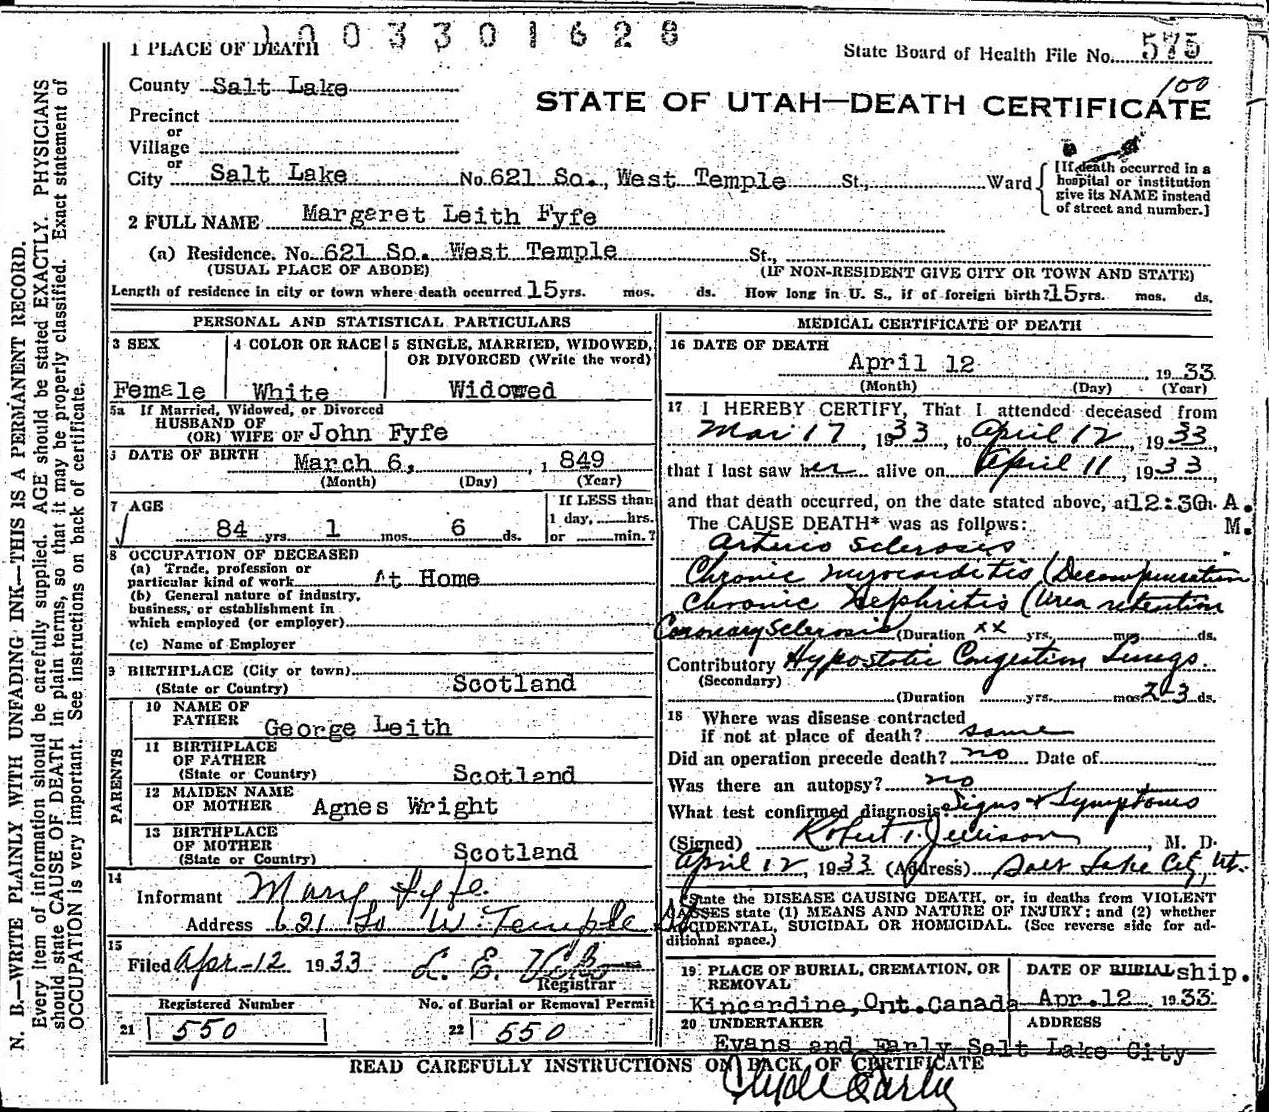 1003301628
1 PLACE OF DEATH
State Board of Health File No. 575
County Salt Lake
100
STATE OF UTAH—DEATH CERTIFICATE
Precinct
or
Village
or
City Salt Lake No. 621 So., West Temple St., Ward
[If death occurred in a hospital or institution give its NAME instead of street and number.]
2 FULL NAME Margaret Leith Fyfe
(a) Residence. No. 621 So. West Temple St.,
(USUAL PLACE OF ABODE) (IF NON-RESIDENT GIVE CITY OR TOWN AND STATE)
Length of residence in city or town where death occurred 15 yrs. mos. ds. How long in U. S., if of foreign birth? 15 yrs. mos. ds.
PERSONAL AND STATISTICAL PARTICULARS
3 SEX
Female
4 COLOR OR RACE
White
5 SINGLE, MARRIED, WIDOWED,
OR DIVORCED (Write the word)
Widowed
5a If Married, Widowed, or Divorced
HUSBAND OF
(OR) WIFE OF John Fyfe
DATE OF BIRTH March 6, , 1849
(Month) (Day) (Year)
7 AGE
84 yrs. 1 mos. 6 ds.
If LESS than
1 day, hrs.
or min.?
8 OCCUPATION OF DECEASED
(a) Trade, profession or
particular kind of work At Home
(b) General nature of industry,
business, or establishment in
which employed (or employer)
(c) Name of Employer
9 BIRTHPLACE (City or town)
(State or Country) Scotland
PARENTS
10 NAME OF
FATHER George Leith
11 BIRTHPLACE
OF FATHER
(State or Country) Scotland
12 MAIDEN NAME
OF MOTHER Agnes Wright
13 BIRTHPLACE
OF MOTHER
(State or Country) Scotland
14
Informant Mary Fyfe.
Address 621 So W. Temple St
15
Filed Apr-12 1933 L. E.
Registrar
Registered Number No. of Burial or Removal Permit
21 550 22 550
MEDICAL CERTIFICATE OF DEATH
16 DATE OF DEATH
April 12 , 1933
(Month) (Day) (Year)
17 I HEREBY CERTIFY, That I attended deceased from
Mar 17, 1933, to April 12, 1933,
that I last saw her alive on April 11, 1933,
and that death occurred, on the date stated above, at 12:30m. A.
M.
The CAUSE DEATH* was as follows:
Arterio Sclerosis
Chronic myocarditis (Decompensation
Chronic Nephritis (Urea retention
Coronary Sclerosis (Duration xx yrs. mos. ds.
Contributory Hypostatic Congestion Lungs.
(Secondary)
(Duration yrs. mos. 2-3 ds.
18 Where was disease contracted
if not at place of death? same
Did an operation precede death? no Date of
Was there an autopsy? no
What test confirmed diagnosis Signs & Symptoms
(Signed) Robert T. Jellison, M. D.
April 12, 1933 (Address) Salt Lake City, Ut.
*State the DISEASE CAUSING DEATH, or, in deaths from VIOLENT
CAUSES state (1) MEANS AND NATURE OF INJURY; and (2) whether
ACCIDENTAL, SUICIDAL OR HOMICIDAL. (See reverse side for ad-
ditional space.)
19 PLACE OF BURIAL, CREMATION, OR
REMOVAL
Kincardine, Ont. Canada
DATE OF BURIAL ship.
Apr. 12 1933
20 UNDERTAKER ADDRESS
Evans and Early Salt Lake City
READ CAREFULLY INSTRUCTIONS ON BACK OF CERTIFICATE
Clyde Early
N. B.—WRITE PLAINLY WITH UNFADING INK—THIS IS A PERMANENT RECORD.
Every item of information should be carefully supplied. AGE should be stated EXACTLY. PHYSICIANS
should state CAUSE OF DEATH in plain terms, so that it may be properly classified. Exact statement of
OCCUPATION is very important. See instructions on back of certificate.